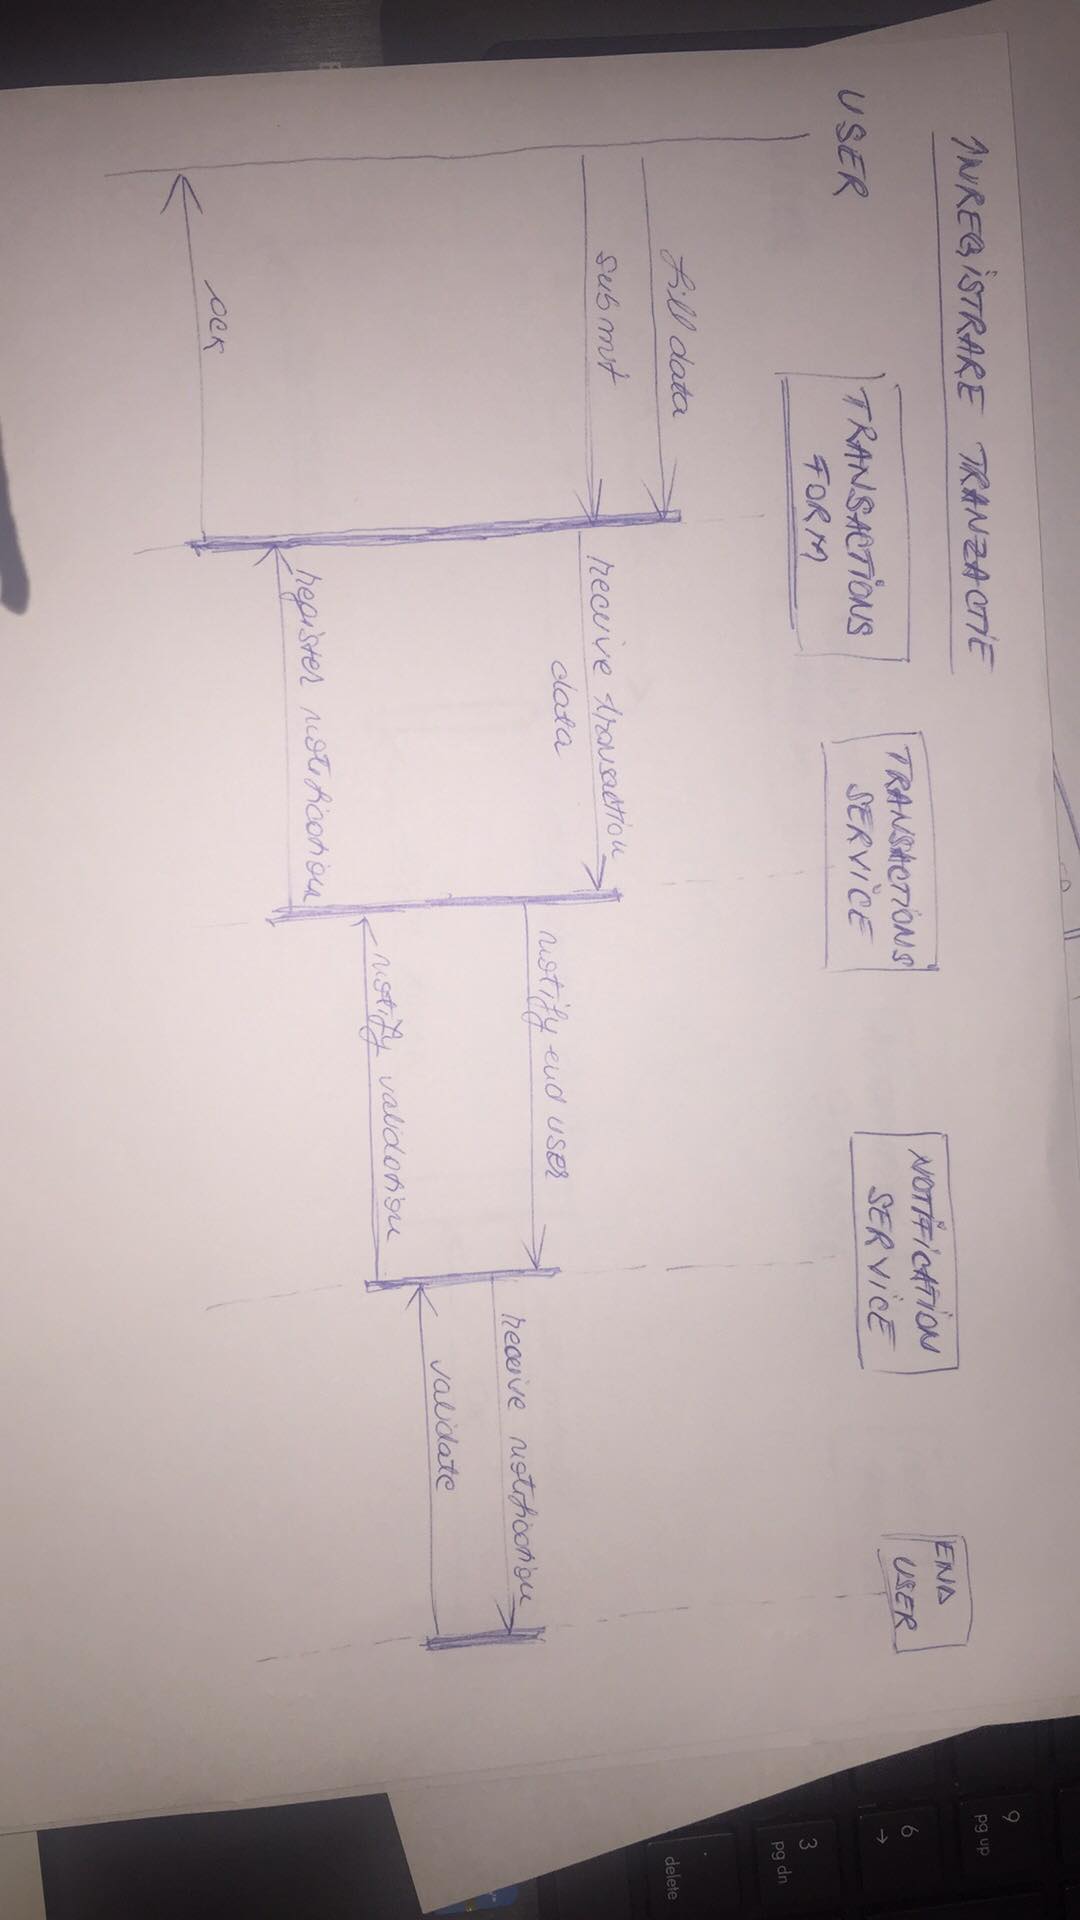 INREGISTRARE TRANZACTIE
USER
TRANSACTIONS
FORM
TRANSACTIONS
SERVICE
NOTIFICATION
SERVICE
END
USER
fill data
submit
receive transaction
data
notify end user
receive notification
validate
notify validation
register notification
ack
9
pg up
6
→
3
pg dn
.
delete